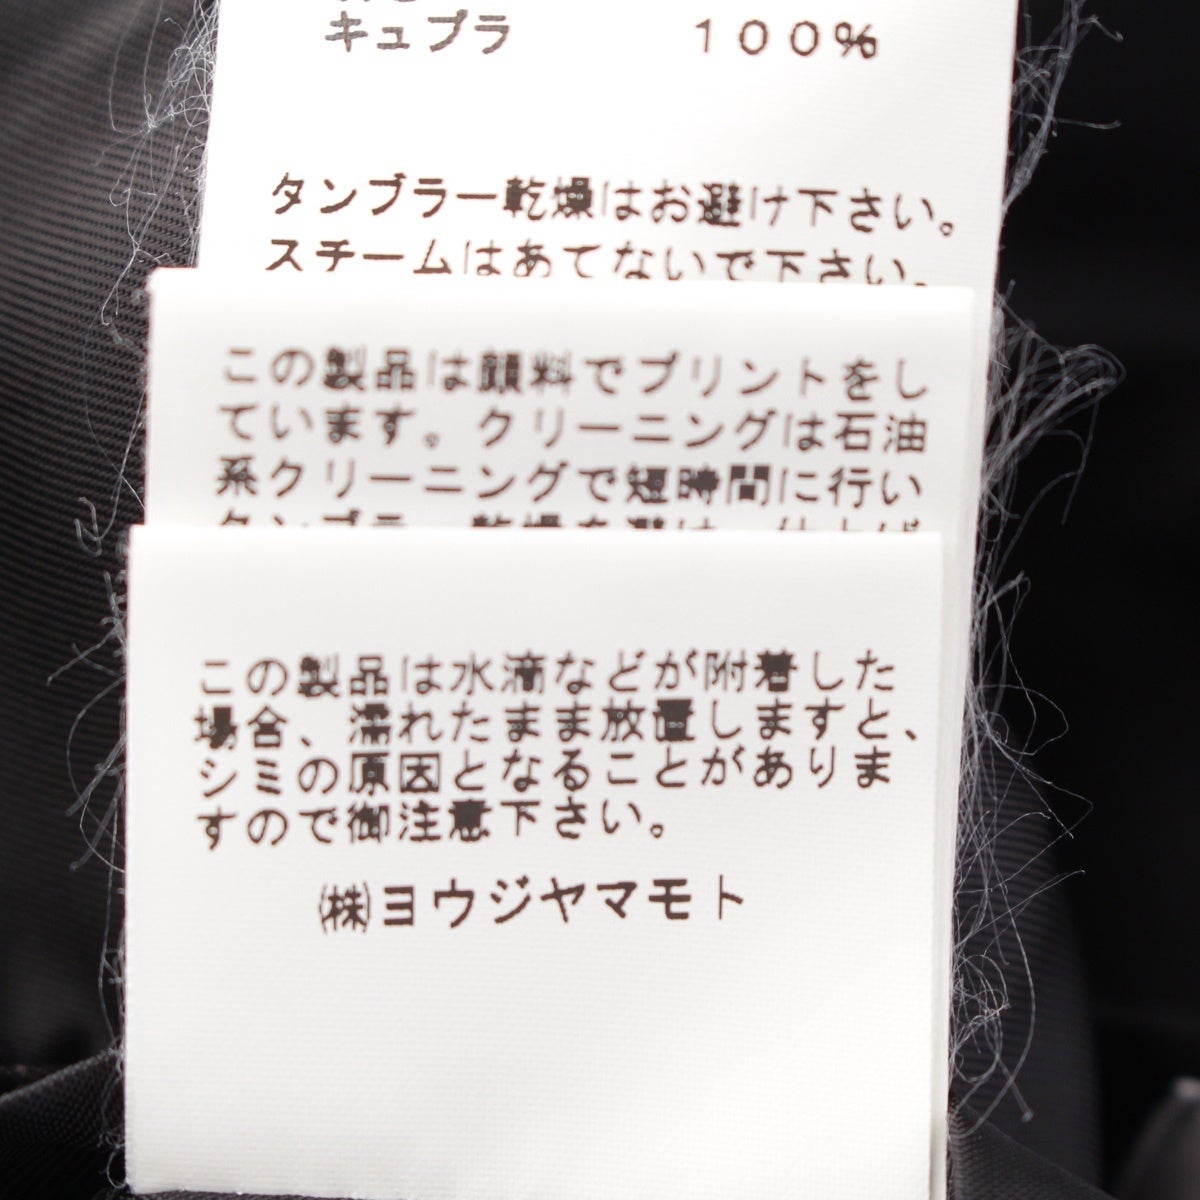 キュプラ 100%
タンブラー乾燥はお避け下さい。
スチームはあてないで下さい。
この製品は顔料でプリントをし
ています。クリーニングは石油
系クリーニングで短時間に行い
タンブラー乾燥を避け、仕上げ
この製品は水滴などが附着した
場合、濡れたまま放置しますと、
シミの原因となることがありま
すので御注意下さい。
㈱ヨウジヤマモト